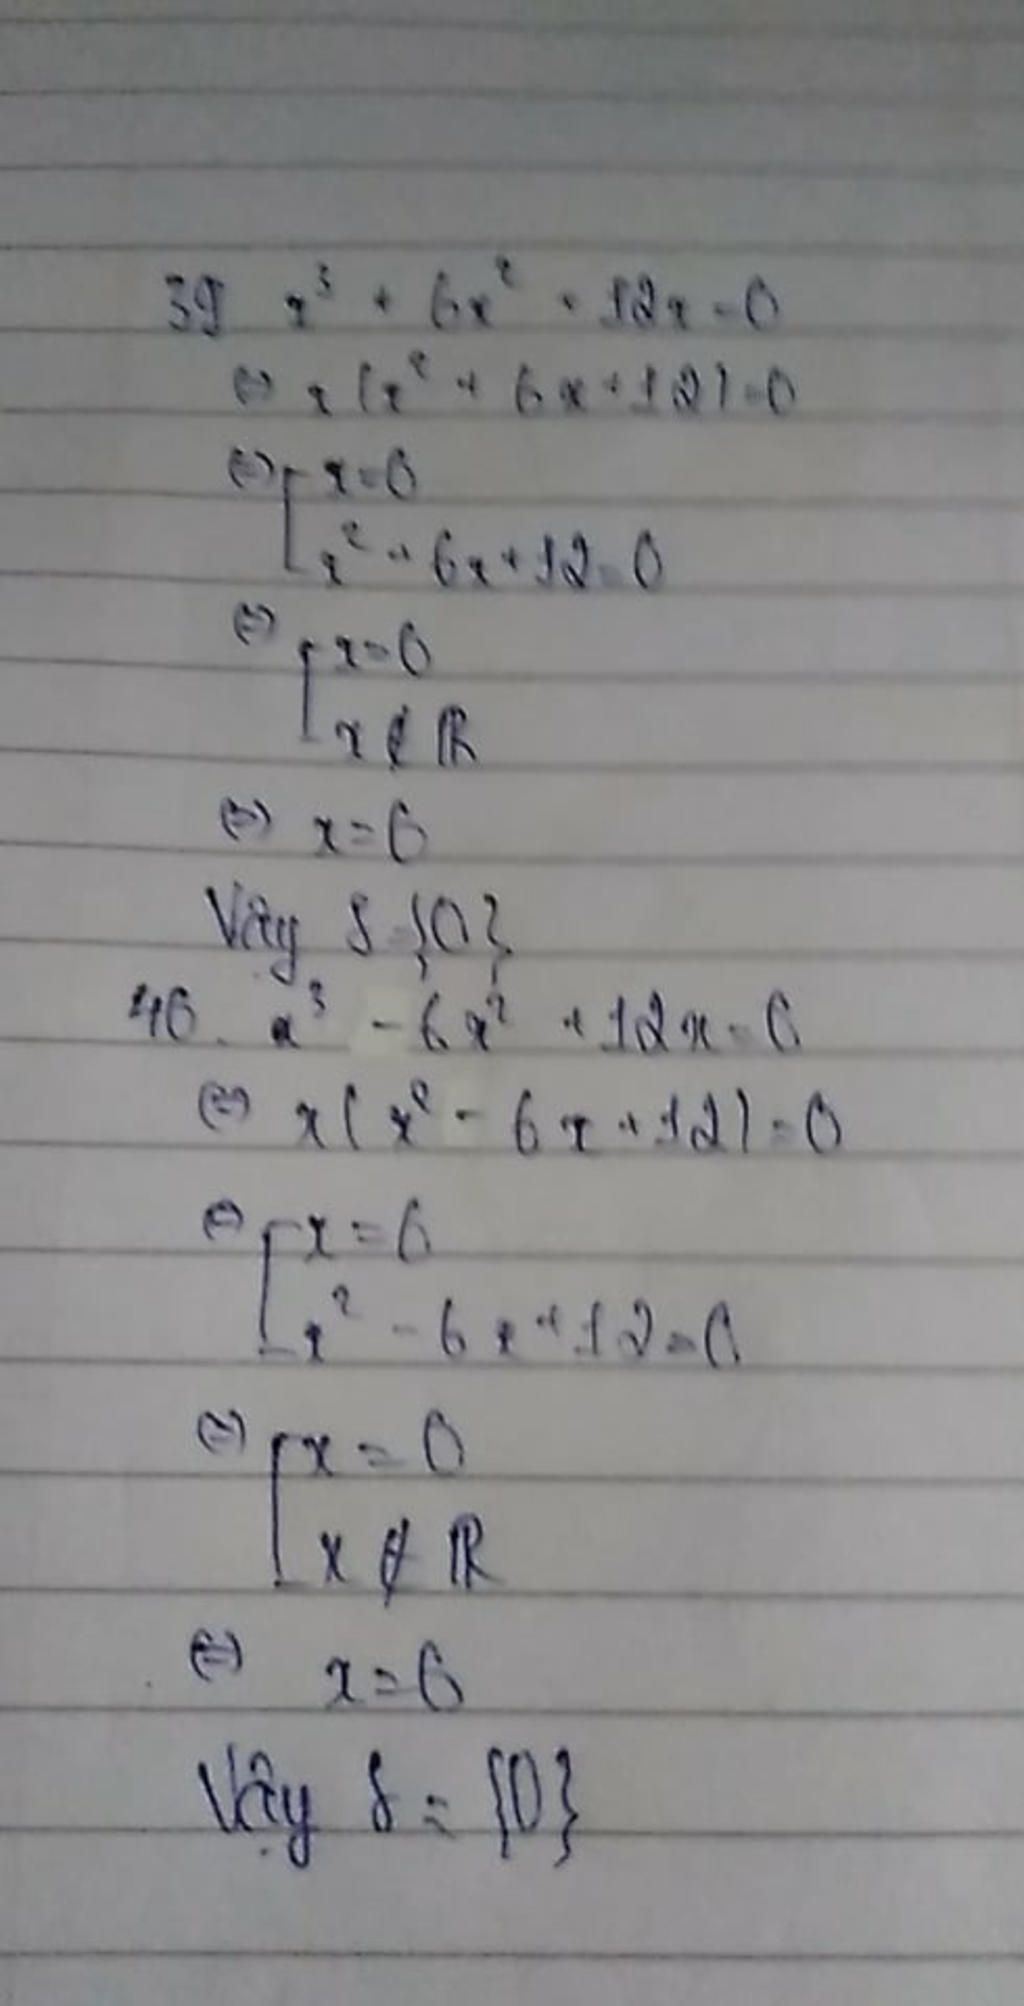 39 x³ + 6x² + 12x = 0
⇔ x(x² + 6x + 12) = 0
⇔ [ x = 0
x² + 6x + 12 = 0
⇔ [ x = 0
x ∉ ℝ
⇔ x = 0
Vậy S = {0}
40. x³ - 6x² + 12x = 0
⇔ x(x² - 6x + 12) = 0
⇔ [ x = 0
x² - 6x + 12 = 0
⇔ [ x = 0
x ∉ ℝ
⇔ x = 0
Vậy S = {0}